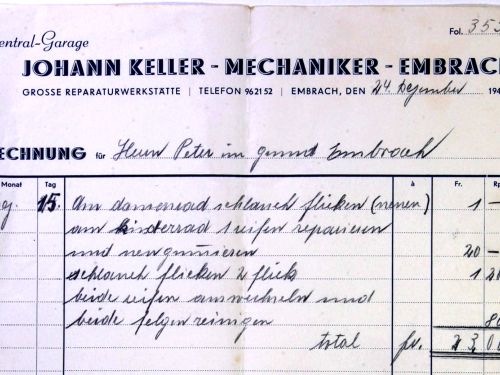 entral-Garage
Fol. 353
JOHANN KELLER - MECHANIKER - EMBRAC
GROSSE REPARATURWERKSTÄTTE | TELEFON 96 21 52 | EMBRACH, DEN 24 Dezember 194
ECHNUNG für Herrn Peter im gmünd Embrach
Monat Tag à Fr. Rp
g. 15. Am damenrad schlauch flicken (neuen) 1 -
am kinderrad 1 reifen reparieren
und neu gummieren 20 -
schlauch flicken 2 flick 1 20
beide reifen auswechseln und
beide felgen reinigen 80
total fr. 23.00